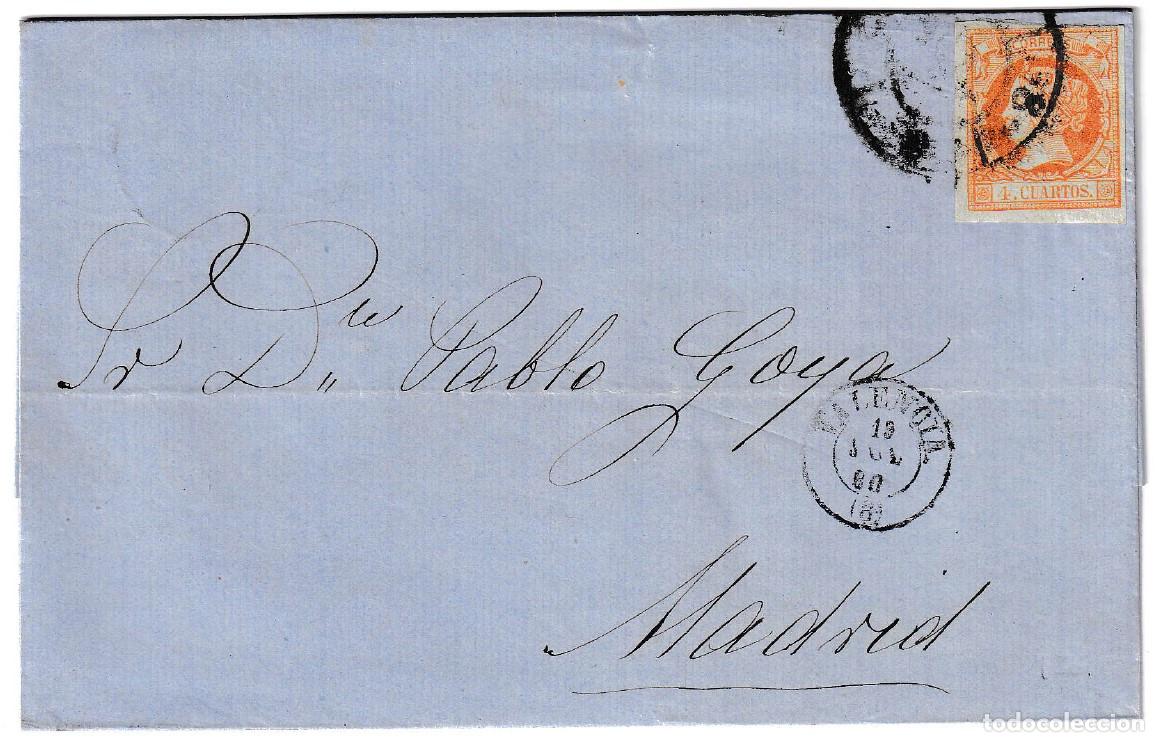 CORREOS
4. CUARTOS.
Sr Dn Pablo Goya
VALENCIA
19
JUL
60
(8)
Madrid
todocoleccion